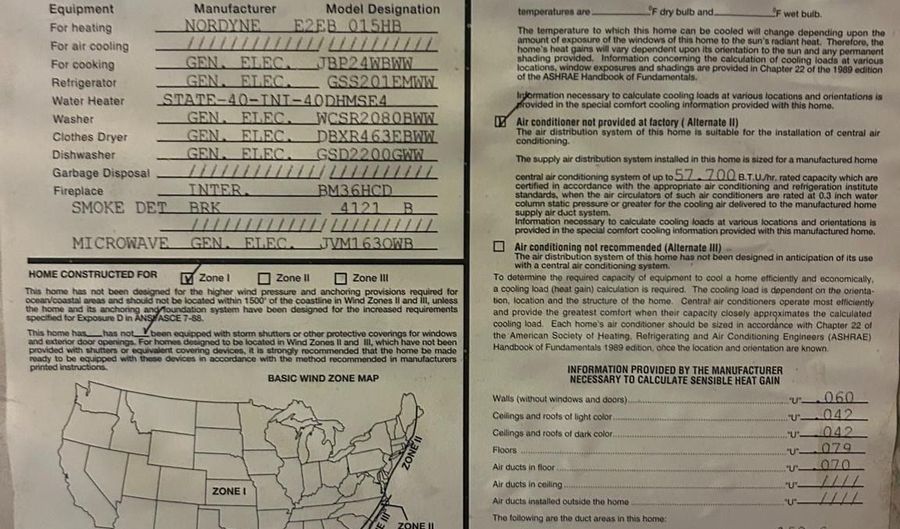 Equipment Manufacturer Model Designation
For heating NORDYNE E2EB 015HB
For air cooling //////////////////////////
For cooking GEN. ELEC. JBP24WBWW
Refrigerator GEN. ELEC. GSS201EMWW
Water Heater STATE-40-INI-40DHMSE4
Washer GEN. ELEC. WCSR2080BWW
Clothes Dryer GEN. ELEC. DBXR463EBWW
Dishwasher GEN. ELEC. GSD2200GWW
Garbage Disposal //////////////////////////
Fireplace INTER. BM36HCD
SMOKE DET BRK 4121 B
//////////////////////////
MICROWAVE GEN. ELEC. JVM1630WB
HOME CONSTRUCTED FOR Zone I Zone II Zone III
This home has not been designed for the higher wind pressure and anchoring provisions required for
ocean/coastal areas and should not be located within 1500' of the coastline in Wind Zones II and III, unless
the home and its anchoring and foundation system have been designed for the increased requirements
specified for Exposure D in ANSI/ASCE 7-88.
This home has____has not____been equipped with storm shutters or other protective coverings for windows
and exterior door openings. For homes designed to be located in Wind Zones II and III, which have not been
provided with shutters or equivalent covering devices, it is strongly recommended that the home be made
ready to be equipped with these devices in accordance with the method recommended in manufacturers
printed instructions.
BASIC WIND ZONE MAP
ZONE I
ZONE II
ZONE III
ZONE II
temperatures are ________ °F dry bulb and ________ °F wet bulb.
The temperature to which this home can be cooled will change depending upon the
amount of exposure of the windows of this home to the sun's radiant heat. Therefore, the
home's heat gains will vary dependent upon its orientation to the sun and any permanent
shading provided. Information concerning the calculation of cooling loads at various
locations, window exposures and shadings are provided in Chapter 22 of the 1989 edition
of the ASHRAE Handbook of Fundamentals.
Information necessary to calculate cooling loads at various locations and orientations is
provided in the special comfort cooling information provided with this home.
Air conditioner not provided at factory ( Alternate II)
The air distribution system of this home is suitable for the installation of central air
conditioning.
The supply air distribution system installed in this home is sized for a manufactured home
central air conditioning system of up to 57,700 B.T.U./hr. rated capacity which are
certified in accordance with the appropriate air conditioning and refrigeration institute
standards, when the air circulators of such air conditioners are rated at 0.3 inch water
column static pressure or greater for the cooling air delivered to the manufactured home
supply air duct system.
Information necessary to calculate cooling loads at various locations and orientations is
provided in the special comfort cooling information provided with this manufactured home.
Air conditioning not recommended (Alternate III)
The air distribution system of this home has not been designed in anticipation of its use
with a central air conditioning system.
To determine the required capacity of equipment to cool a home efficiently and economically,
a cooling load (heat gain) calculation is required. The cooling load is dependent on the orienta-
tion, location and the structure of the home. Central air conditioners operate most efficiently
and provide the greatest comfort when their capacity closely approximates the calculated
cooling load. Each home's air conditioner should be sized in accordance with Chapter 22 of
the American Society of Heating, Refrigerating and Air Conditioning Engineers (ASHRAE)
Handbook of Fundamentals 1989 edition, once the location and orientation are known.
INFORMATION PROVIDED BY THE MANUFACTURER
NECESSARY TO CALCULATE SENSIBLE HEAT GAIN
Walls (without windows and doors) "U" .060
Ceilings and roofs of light color "U" .042
Ceilings and roofs of dark color "U" .042
Floors "U" .079
Air ducts in floor "U" .070
Air ducts in ceiling "U" ////
Air ducts installed outside the home "U" ////
The following are the duct areas in this home: